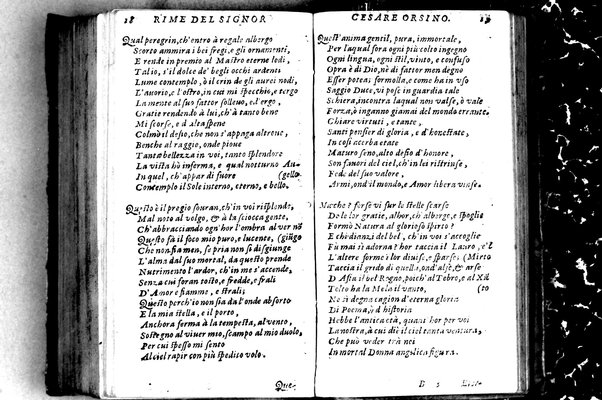 18 RIME DEL SIGNOR
Qual peregrin, ch'entro à regale albergo
Scorto ammira i bei fregi, e gli ornamenti,
E rende in premio al Mastro eterne lodi,
Talio, s'il dolce de' begli occhi ardenti
Lume contemplo, ò il crin de gli aurei nodi,
L'auorio, e l'ostro, in cui mi specchio, e tergo
La mente al suo fattor solleuo, ed ergo,
Gratie rendendo à lui, ch'à tanto bene
Mi scorse, e d'alta spene
Colmò il desio, che non s'appaga altroue,
Benche al raggio, onde pioue
Tanta bellezza in voi, tanto splendore
La vista hò inferma, e qual notturno Au-
In quel, ch'appar di fuore (gello
Contemplo il Sole interno, eterno, e bello.
Questo è il pregio souran, ch'in voi risplende,
Mal noto al volgo, & à la sciocca gente,
Ch'abbracciando ogn'hor l'ombra al ver nò
Questo fà il foco mio puro, e lucente, (giūge
Che non fia men, se pria non si disgiunge
L'alma dal suo mortal, da questo prende
Nutrimento l'ardor, ch'in me s'accende,
Senza cui foran tosto, e fredde, e frali
D'Amor e fiamme, e strali;
Questo perch'io non sia da l'onde absorto
E la mia stella, e il porto,
Anchora ferma à la tempesta, al vento,
Sostegno al viuer mio, scampo al mio duolo,
Per cui spesso mi sento
Al ciel rapir con più spedito volo.
Que-
CESARE ORSINO. 19
Quest'anima gentil, pura, immortale,
Per la qual fora ogni più colto ingegno
Ogni lingua, ogni stil, vinto, e confuso
Opra è di Dio, nè di fattor men degno
Esser potea: formolla, e come ha in vso
Saggio Duce, vi pose in guardia tale
Schiera, incontra la qual non valse, ò vale
Forza, ò inganno giamai del mondo errante.
Chiare virtuti, e tante,
Santi pensier di gloria, e d'honestate,
In così acerba etate
Maturo seno, alto desio d'honore,
Son fauori del ciel, ch'in lei ristrinse,
Fede del suo valore,
Armi, ond'il mondo, e Amor libera vinse.
Ma che? forse vi sur le stelle scarse
De le lor gratie, alhor, ch'alberge, e spoglie
Formò Natura al glorioso spirto?
E ch'è dianzi del bel, ch'in voi s'accoglie
Fù mai sè adorna? hor taccia il Lauro, e'l
L'altere forme e lor diuise, e sparse; (Mirto
Taccia il grido di quella, ond'alse, & arse
D'Asia il bel Regno, poich'al Tebro, e al Xā
Tolto ha la Mela il vanto, (to
Ne sì degna cagion d'eterna gloria
Di Poema, ò d'historia
Hebbe l'antica età, quant'hor per voi
La nostra, à cui diè il ciel tanta ventura,
Che può veder trà noi
In mortal Donna angelica figura.